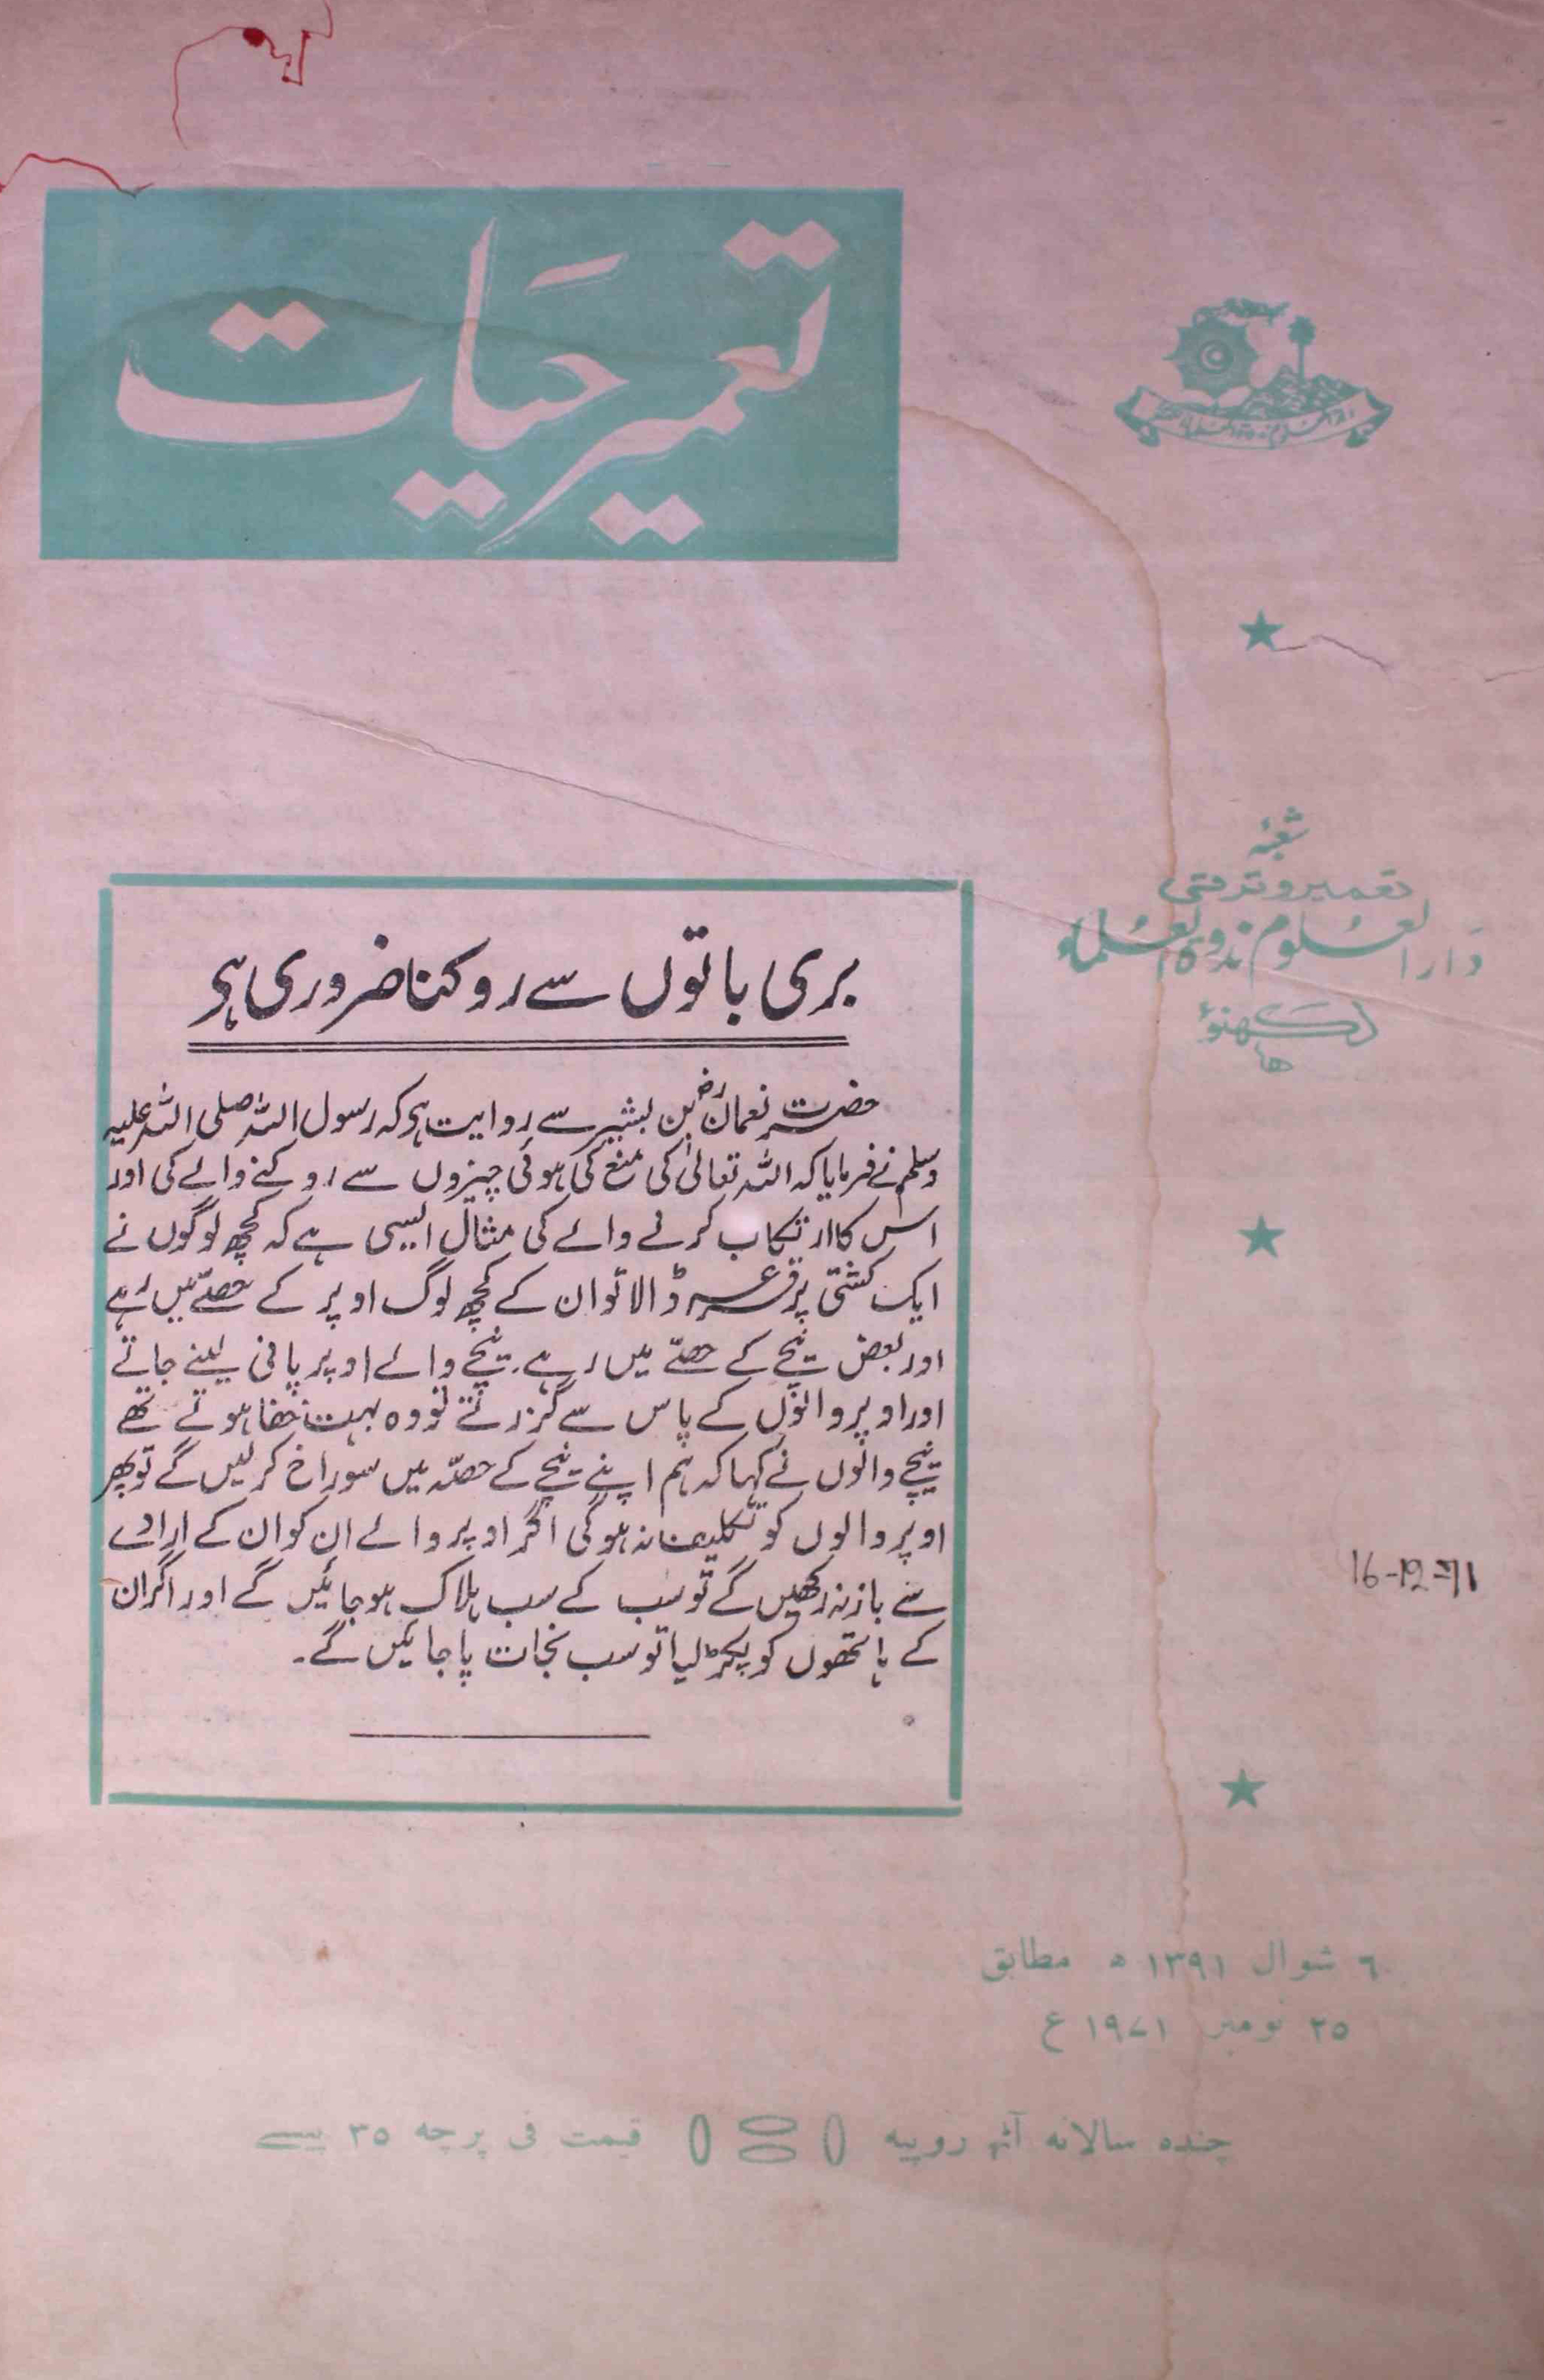 تعمیر حیات
شعبۂ
تعمیر و ترقی
دارالعلوم ندوة العلماء
لکھنؤ
بری باتوں سے روکنا ضروری ہی
حضرت نعمانؓ بن بشیر سے روایت ہی کہ رسول اللہ صلی اللہ علیہ
وسلم نے فرمایا کہ اللہ تعالیٰ کی منع کی ہوئی چیزوں سے روکنے والے کی اور
اس کا ارتکاب کرنے والے کی مثال ایسی ہے کہ کچھ لوگوں نے
ایک کشتی پر قرعہ ڈالا تو ان کے کچھ لوگ اوپر کے حصّے میں رہے
اور بعض نیچے کے حصّے میں رہے۔ نیچے والے اوپر پانی لینے جاتے
اور اوپر والوں کے پاس سے گزرتے تو وہ بہت خفا ہوتے تھے
نیچے والوں نے کہا کہ ہم اپنے نیچے کے حصّہ میں سوراخ کر لیں گے تو پھر
اوپر والوں کو تکلیف نہ ہوگی اگر اوپر والے ان کو ان کے ارادے
سے باز نہ رکھیں گے تو سب کے سب ہلاک ہو جائیں گے اور اگر ان
کے ہاتھوں کو پکڑ لیا تو سب نجات پا جائیں گے۔
16-12-71
٦ شوال ١٣٩١ ھ مطابق
٢٥ نومبر ١٩٧١ ع
چندہ سالانہ آٹھ روپیہ قیمت فی پرچہ ٣٥ پیسے